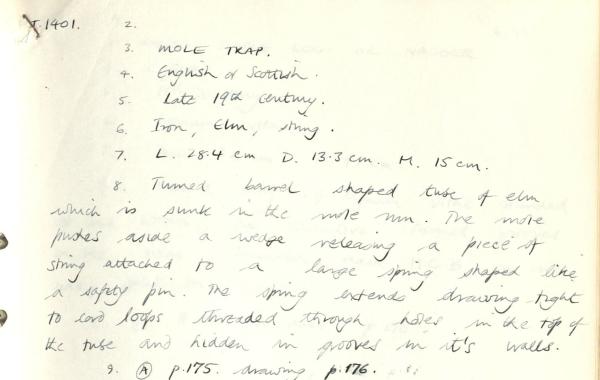 T.1401. 2.
3. MOLE TRAP.
4. English or Scottish.
5. Late 19th century.
6. Iron, Elm, string.
7. L. 28.4 cm D. 13.3 cm. H. 15 cm.
8. Turned barrel shaped tube of elm
which is sunk in the mole run. The mole
pushes aside a wedge releasing a piece of
string attached to a large spring shaped like
a safety pin. The spring extends drawing tight
to cord loops threaded through holes in the top of
the tube and hidden in grooves in it's walls.
9. (A) p.175. drawing p.176.